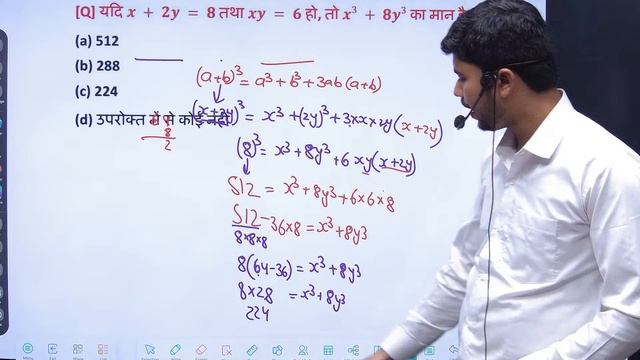 [Q] यदि x + 2y = 8 तथा xy = 6 हो, तो x³ + 8y³ का मान है
(a) 512
(b) 288
(c) 224
(d) उपरोक्त में से कोई नहीं
8
2
(a+b)³ = a³+b³+3ab(a+b)
(x+2y)³ = x³+(2y)³+3×x×2y(x+2y)
(8)³ = x³+8y³+6xy(x+2y)
512 = x³+8y³+6×6×8
512-36×8 = x³+8y³
8×8×8
8(64-36) = x³+8y³
8×28 = x³+8y³
224